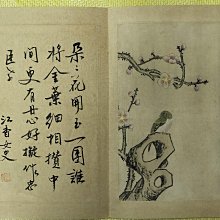 朵々花開玉一團誰
將金葉細相攢中
間更有丹心好擬作忠
臣看
江香女史